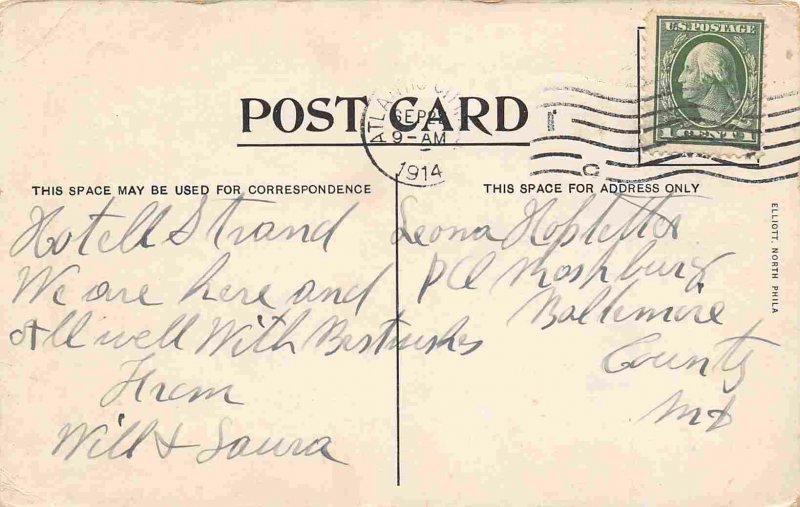 U.S. POSTAGE
1 CENT 1
POST CARD
ATLANTIC CITY
SEP 22
9-AM
1914
C
THIS SPACE MAY BE USED FOR CORRESPONDENCE
THIS SPACE FOR ADDRESS ONLY
Hotell Strand
We are here and
All well With Bestwishes
From
Will & Laura
Leona
Baltimore
County
Md
ELLIOTT, NORTH PHILA